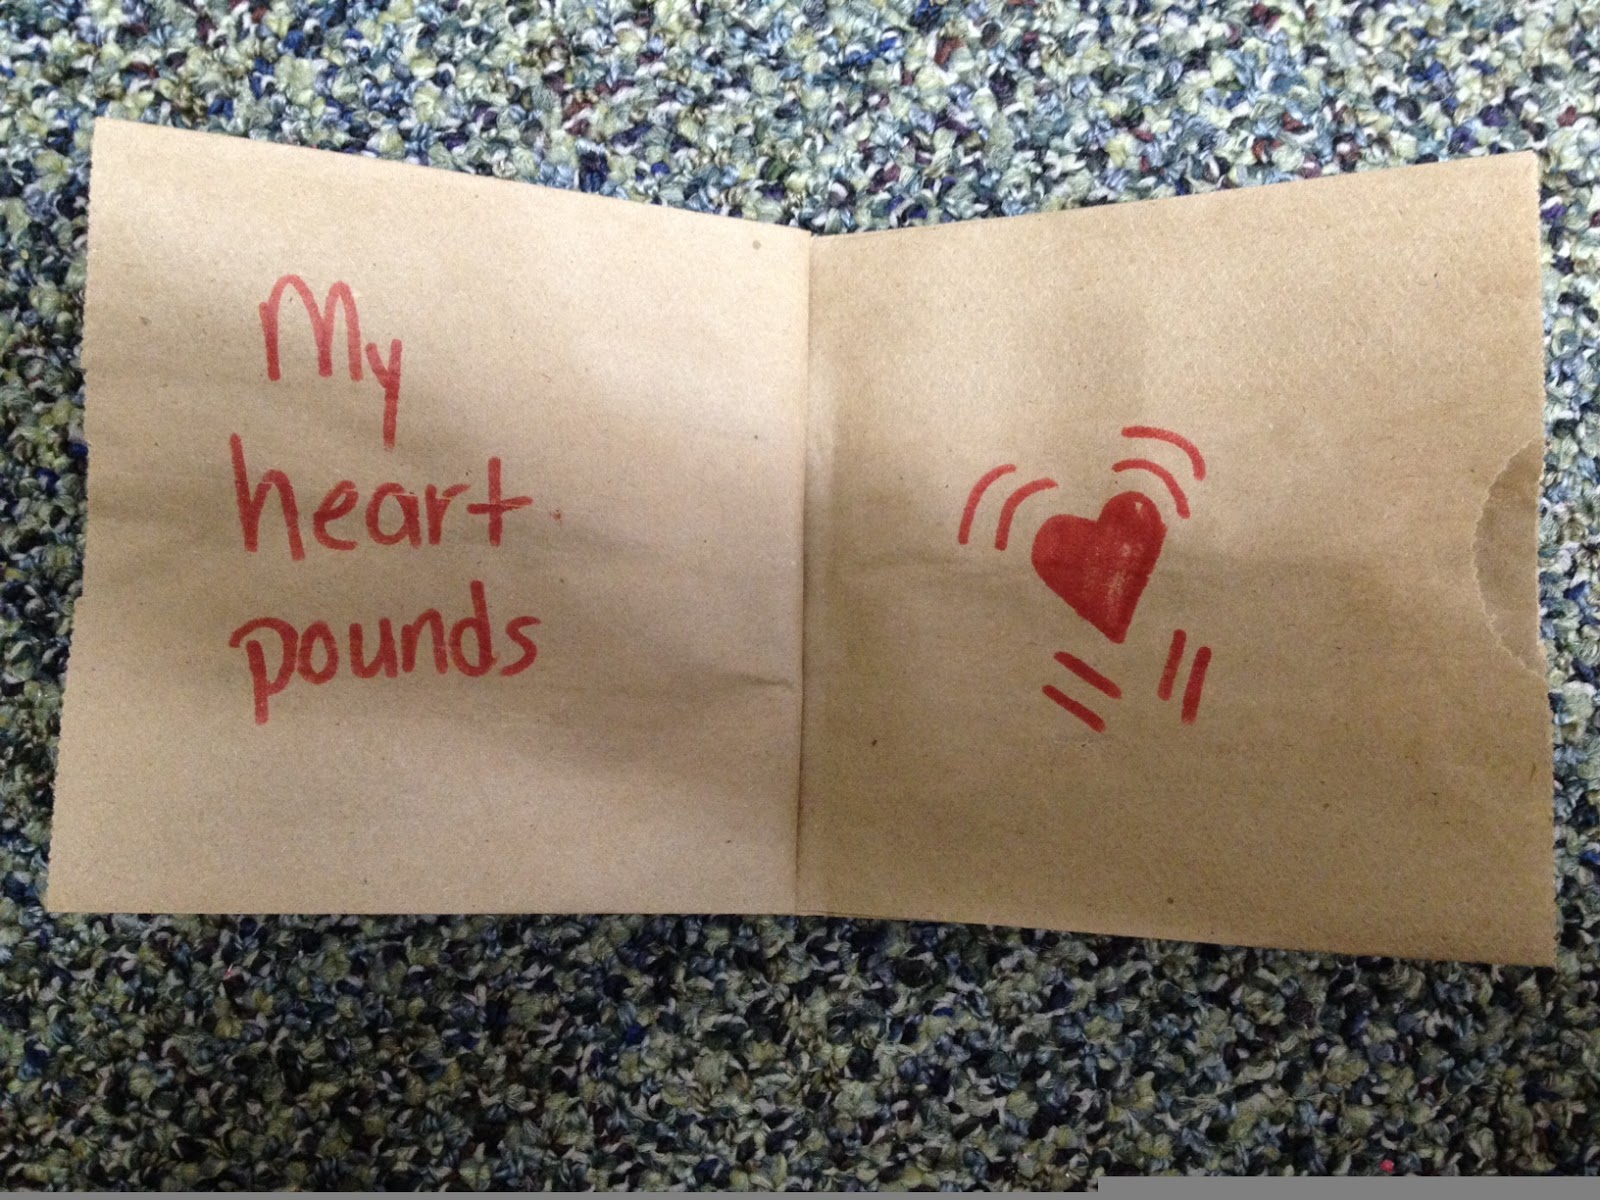 My
heart
pounds